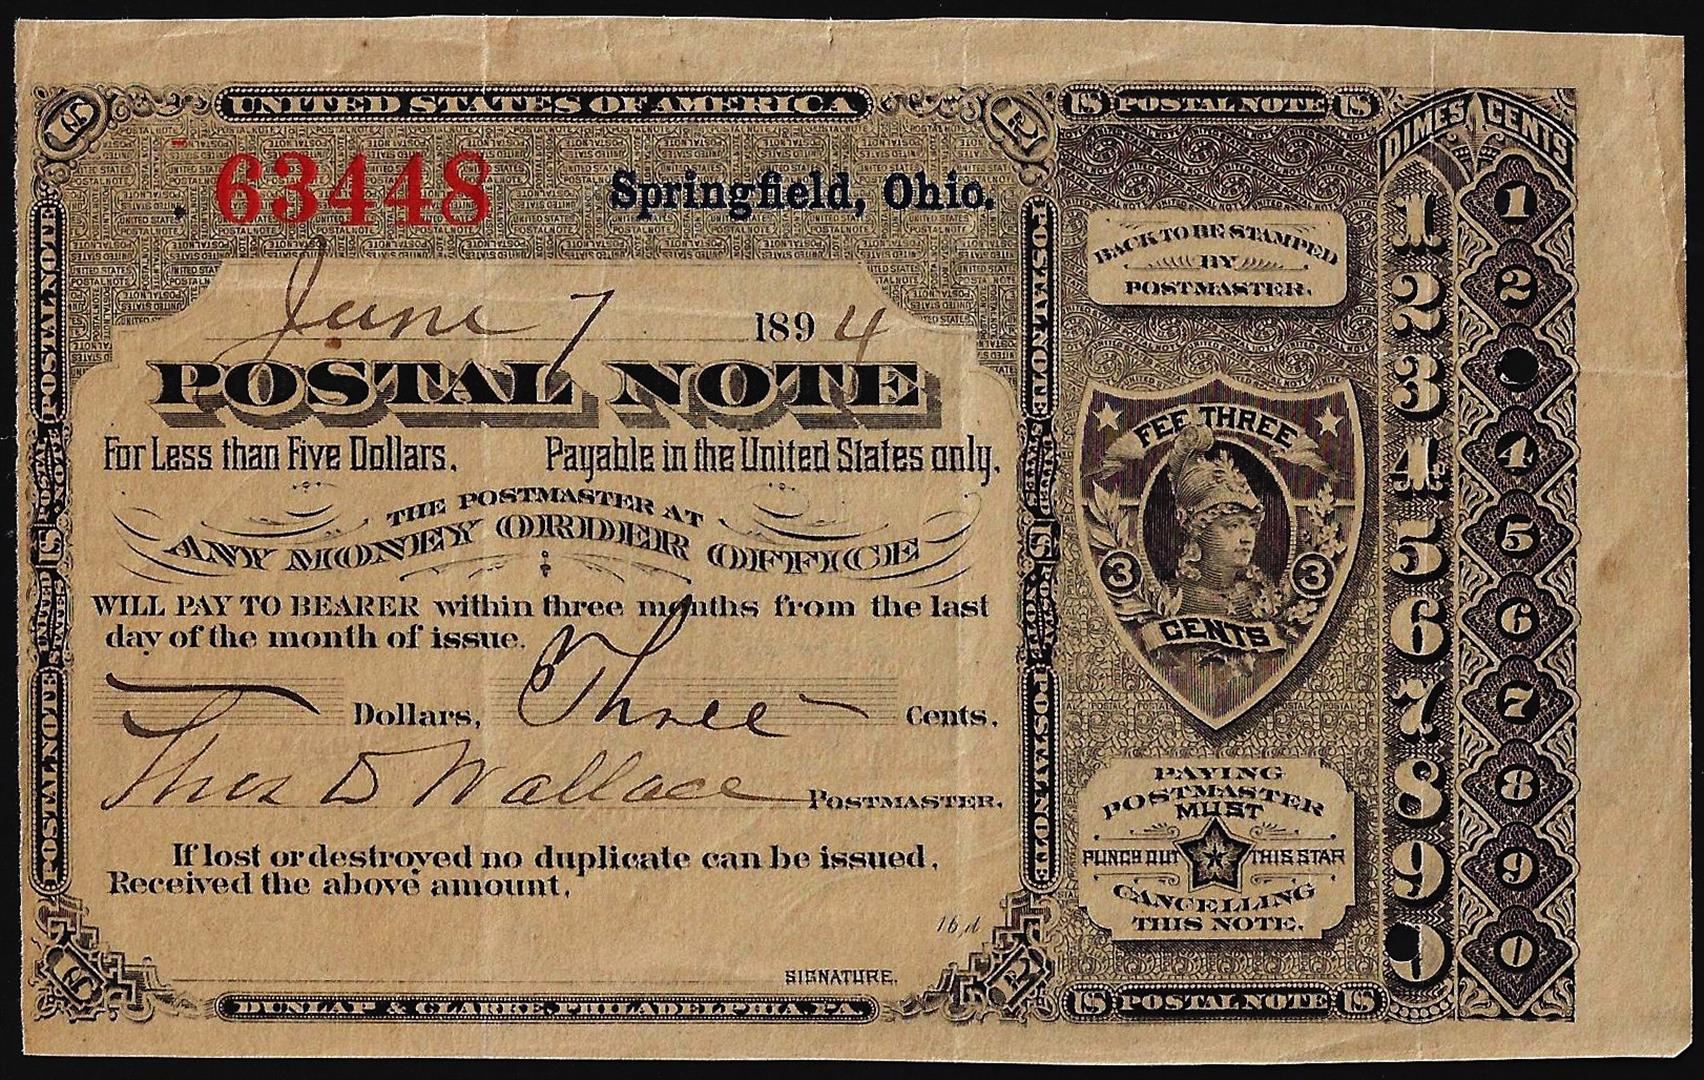 UNITED STATES OF AMERICA
63448
Springfield, Ohio.
June 7 1894
POSTAL NOTE
For Less than Five Dollars. Payable in the United States only.
THE POSTMASTER AT
ANY MONEY ORDER OFFICE
WILL PAY TO BEARER within three months from the last
day of the month of issue.
Dollars, Three Cents.
Thos D Wallace POSTMASTER.
If lost or destroyed no duplicate can be issued.
Received the above amount.
16,d
SIGNATURE.
DUNLAP & CLARKE, PHILADELPHIA, PA.
POSTAL NOTE
BACK TO BE STAMPED
BY
POSTMASTER.
FEE THREE
3 3
CENTS
PAYING
POSTMASTER
MUST
PUNCH OUT THIS STAR
CANCELLING
THIS NOTE.
US POSTAL NOTE US
DIMES CENTS
1 1
2 2
3
4 4
5 5
6 6
7 7
8 8
9 9
0 0